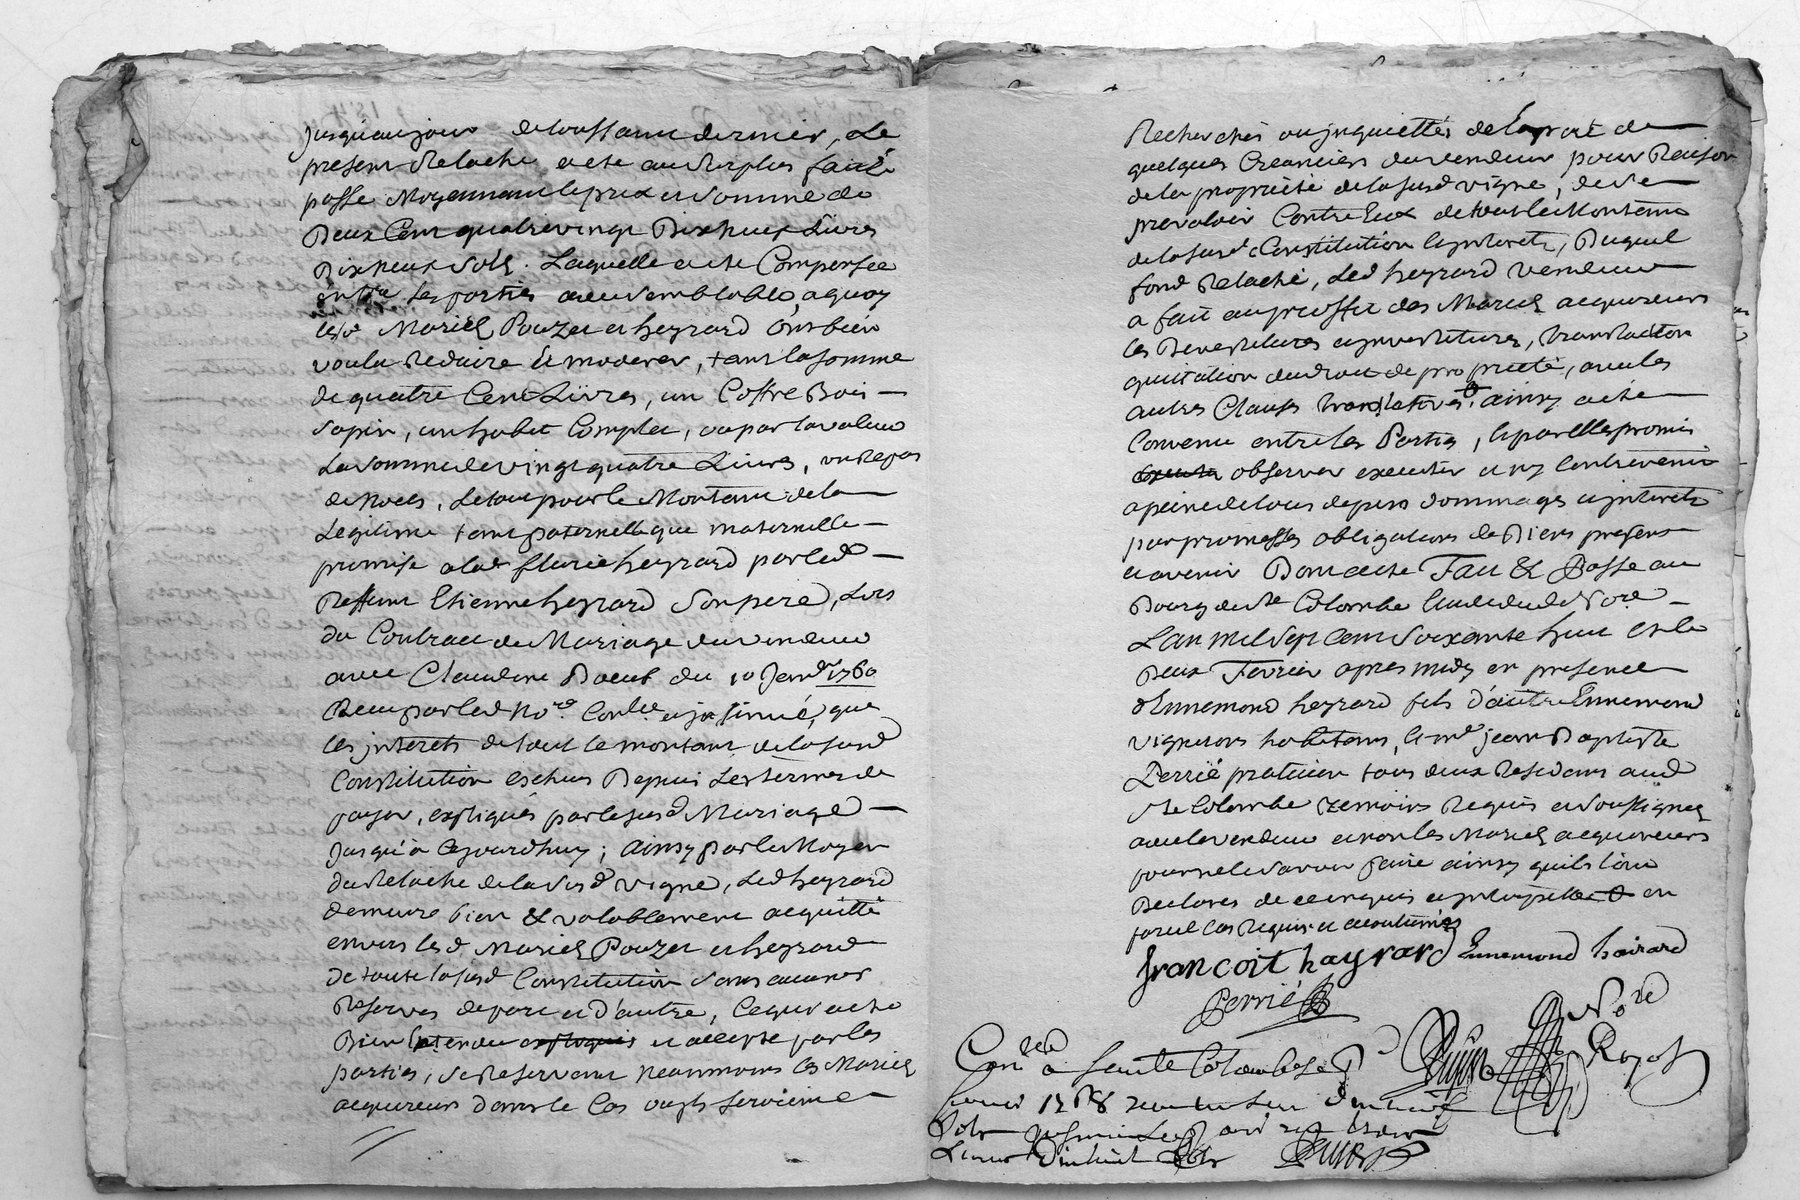 Jusqu'aujour de toussaint dernier, Le
present Relache a esté au surplus fait &
passé Moyennant le prix et somme de
Deux Cent quatrevingt Dixhuit Livres
Dixneuf sols. Laquelle a esté Compensée
entre les parties avec semblable, a quoy
lesd. Mariés Pouzet et heyrard ont bien
voulu Reduire & moderer, tant la somme
de quatre Cent Livres, un Coffre Bois
sapin, un habit Complet, ou par la valeur
La somme de vingt quatre Livres, un Repas
de noces, Le tout pour le Montant de la
Legitime tant paternelle que maternelle
promise a lad. fleurie heyrard par led.
Deffunt Etienne heyrard son pere, Lors
du Contract de Mariage du vendeur
avec Claudine Boeuf du 10 Janvr. 1760
Receu par led. No.re Con.lé et insinué, que
les interets de tout le montant de la susd.
Constitution eschus Depuis Les termes de
payer, expliqués par le susd. Mariage
Jusqu'à cejourd'huy; ainsy par le Moyen
du Relache de la susd. vigne, Led. heyrard
demeure bien & valablement acquitté
envers lesd. Mariés Pouzet et heyrard
de toute la susd. Constitution sans aucunes
Reserves de part et d'autre, Ce qui a esté
Bien Entendu expliqués et accepté par les
parties, se Reservant neanmoins les Mariés
acquereurs dans le Cas ou ils seroient
Recherchés ou inquiettés de la part de
quelques Creanciers du vendeur pour Raison
de la propriété de la susd. vigne, de se
prevaloir Contre Eux de tout le Montant
de la susd. Constitution & interets, Duquel
fond Relaché, Led. heyrard vendeur
a fait au proffit des Mariés acquereurs
les Devestitures & investitures, translation
quittation du droit de propriété, avec les
autres Clauses translatives. ainsy a esté
Convenu entre les Parties, & par Elles promis
observer executer et n'y contrevenir
a peine de tous depens dommages & interets
par promesses obligations de Biens presens
et avenir Dont acte Fait & Passé au
Bourg de Ste Colombe Etude dud. No.re
L'an mil sept cent soixante huit & le
Deux Fevrier apres midy en presence
d'Ennemond heyrard fils d'autre Ennemond
vigneron habitant, & me. jean Baptiste
Perrié praticien tous deux Residans aud.
Ste Colombe temoins Requis et soussignés
avec le vendeur et non les Mariés acquereurs
pour ne le savoir faire ainsy qu'ils l'ont
Declarés de ce enquis & interpellés en
pareil Cas Requis et accoutumés
francoit hayrard Ennemond hairard
Perrié
No.re
Royol
Con.lé a sainte Colombe le
1768
sols
Livres Dixhuit sols